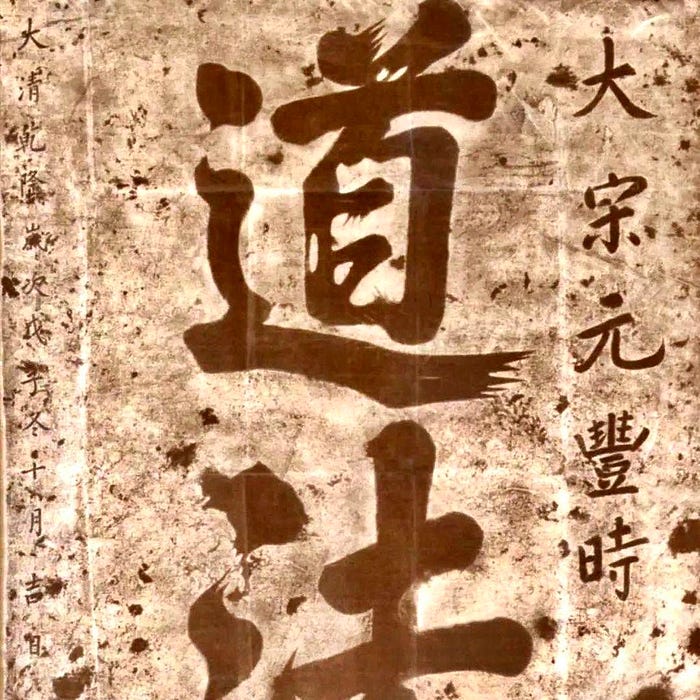 大宋元豐時
道法
大清乾隆歲次戊子冬十月吉日